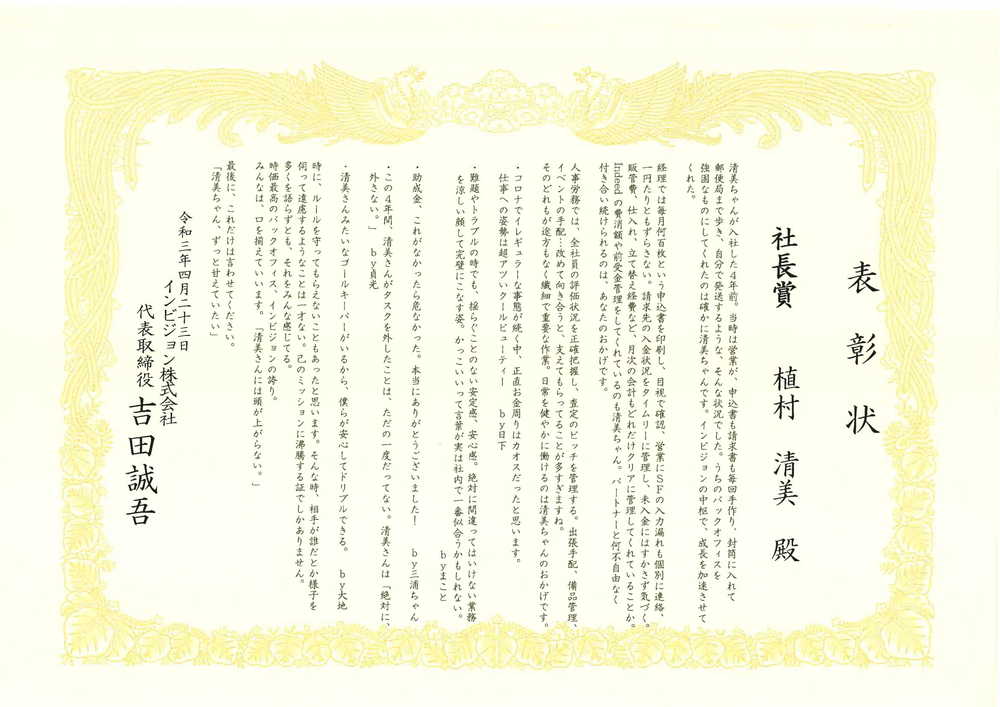 表彰状
社長賞　植村　清美　殿
清美ちゃんが入社した４年前。当時は営業が、申込書も請求書も毎回手作り、封筒に入れて
郵便局まで歩き、自分で発送するような、そんな状況でした。うちのバックオフィスを
強固なものにしてくれたのは確かに清美ちゃんです。インビジョンの中枢で、成長を加速させて
くれた。
経理では毎月何百枚という申込書を印刷し、目視で確認、営業にＳＦの入力漏れも個別に連絡、
一円たりともずらさない。請求先の入金状況をタイムリーに管理し、未入金にはすかさず気づく。
販管費、仕入れ、立て替え経費など、月次の会計もどれだけクリアに管理してくれていることか。
Indeedの費消額や前受金管理をしてくれているのも清美ちゃん。パートナーと何不自由なく
付き合い続けられるのは、あなたのおかげです。
人事労務では、全社員の評価状況を正確把握し、査定のピッチを管理する。出張手配、備品管理、
イベントの手配…改めて向き合うと、支えてもらってることが多すぎますね。
そのどれもが途方もなく繊細で重要な作業。日常を健やかに働けるのは清美ちゃんのおかげです。
・コロナでイレギュラーな事態が続く中、正直お金周りはカオスだったと思います。
仕事への姿勢は超アツいクールビューティー　ｂｙ日下
・難題やトラブルの時でも、揺らぐことのない安定感、安心感。絶対に間違ってはいけない業務
を涼しい顔して完璧にこなす姿。かっこいいって言葉が実は社内で一番似合うかもしれない。
ｂｙまこと
・助成金、これがなかったら危なかった。本当にありがとうございました！　ｂｙ三浦ちゃん
・この４年間、清美さんがタスクを外したことは、ただの一度だってない。清美さんは「絶対に、
外さない。」　ｂｙ貞光
・清美さんみたいなゴールキーパーがいるから、僕らが安心してドリブルできる。　ｂｙ大地
時に、ルールを守ってもらえないこともあったと思います。そんな時、相手が誰だとか様子を
伺って遠慮するようなことは一才ない。己のミッションに沸騰する証でしかありません。
多くを語らずとも、それをみんな感じてる。
時価最高のバックオフィス、インビジョンの誇り。
みんなは、口を揃えていいます。「清美さんには頭が上がらない。」
最後に、これだけは言わせてください。
「清美ちゃん、ずっと甘えていたい」
令和三年四月二十三日
インビジョン株式会社
代表取締役　吉田誠吾